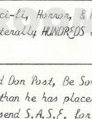 ci-fi, Horror, &
terally HUNDREDS
d Don Post, Be So
than he has place
send S.A.S.E. for